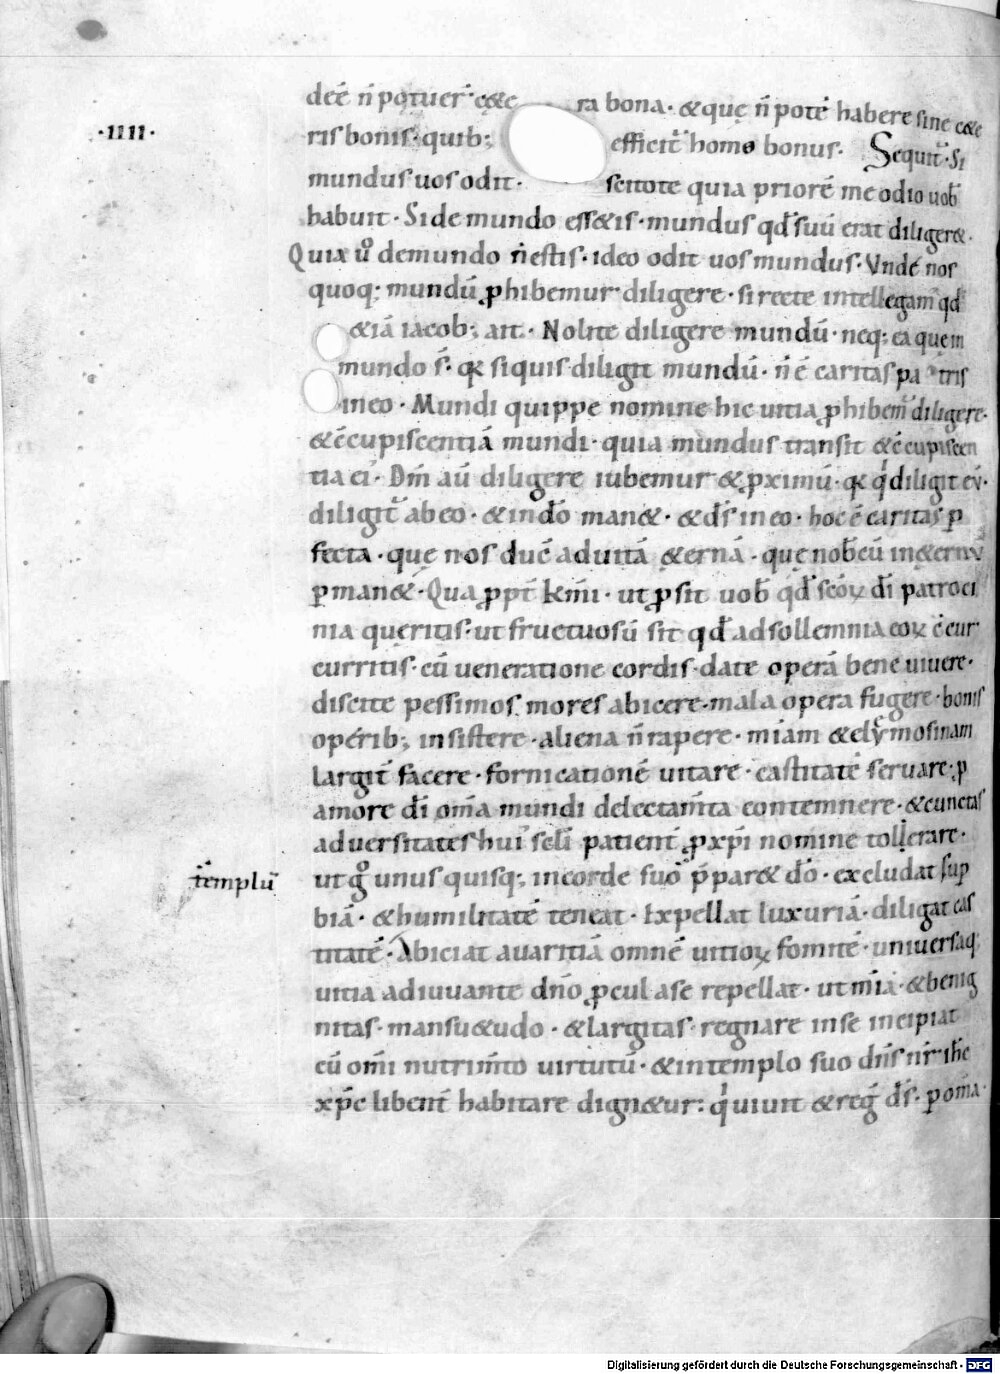 deēe n̄ potuer̄ · cẹ&e ra bona · &quę n̄ potē habere sine cẹ&e
·IIII· ris bonis · quib; efficit̄ homo bonus · Sequit̄ · Si
mundus uos odit · scitote quia priorē me odio uob̄
habuit · Si de mundo ess&is · mundus qd̄ suū erat diliger& ·
Quia ů demundo n̄ estis · ideo odit uos mundus · Vnde nos
quoq; mundū ꝓhibemur diligere · si recte intellegam̄ qd̄
&iā iacob; ait · Nolite diligere mundū · neq; ea quę in
mundo s̄ · qꝛ siquis diligit mundū · n̄ ē caritas pa tris
ineo · Mundi quippe nomine hic uitia ꝓhibem̄ diligere ·
&c̄cupiscentiā mundi · quia mundus transit &c̄cupiscen
tia ei' · Dm̄ aū diligere iubemur &ꝓximū · qꝛ q̇ diligit eū ·
diligit̄ ab eo · &indō man& · &ds̄ ineo · hoc ē caritas ꝑ
fecta · quę nos duc̄ aduitā &ernā · quę nob̄cū in&ernū
ꝑman& · Qua ꝓpt̄ km̄i · ut ꝓsit uob̄ qd̄ sc̄oꝝ dī patroci
nia quęritis · ut fructuosū sit qd̄ adsollemnia eoꝝ c̄cur
curritis · cū ueneratione cordis · date operā bene uiuere ·
discite pessimos mores abicere · mala opera fugere · bonis
operib; insistere · aliena n̄ rapere · miam &elymosinam
largit̄ facere · fornicationē uitare · castitatē seruare · ꝓ
amore dī om̄a mundi delectam̄ta contemnere · &cunctas
aduersitates hui' sc̄li patient̄ ꝓ xp̄i nomine tollerare ·
templū ut g̊ unus quisq; incorde suo p̄par& dō · excludat suꝑ
biā · &humilitatē teneat · Expellat luxuriā · diligat cas
titatē · Abiciat auaritiā omnē uitioꝝ fomitē · uniuersaq;
uitia adiuuante dn̄o ꝓcul ase repellat · ut mīa · &benig
nitas · mansu&udo · &largitas · regnare inse incipiat
cū om̄i nutrim̄to uirtutū · &intemplo suo dn̄s nr̄ ih̄c
xp̄c libent̄ habitare dign&ur: q̇ uiuit &reḡ ds̄ · ꝑ om̄a ·
Digitalisierung gefördert durch die Deutsche Forschungsgemeinschaft · DFG